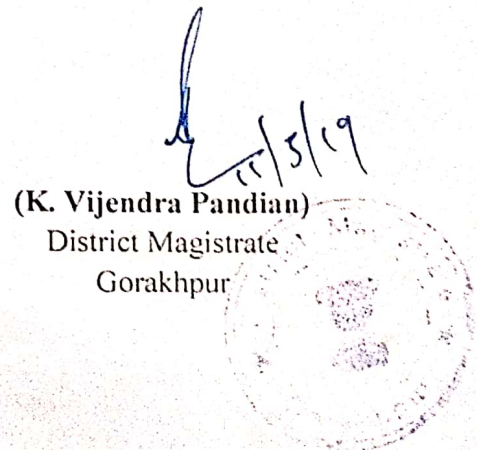 11/5/19
(K. Vijendra Pandian)
District Magistrate
Gorakhpur